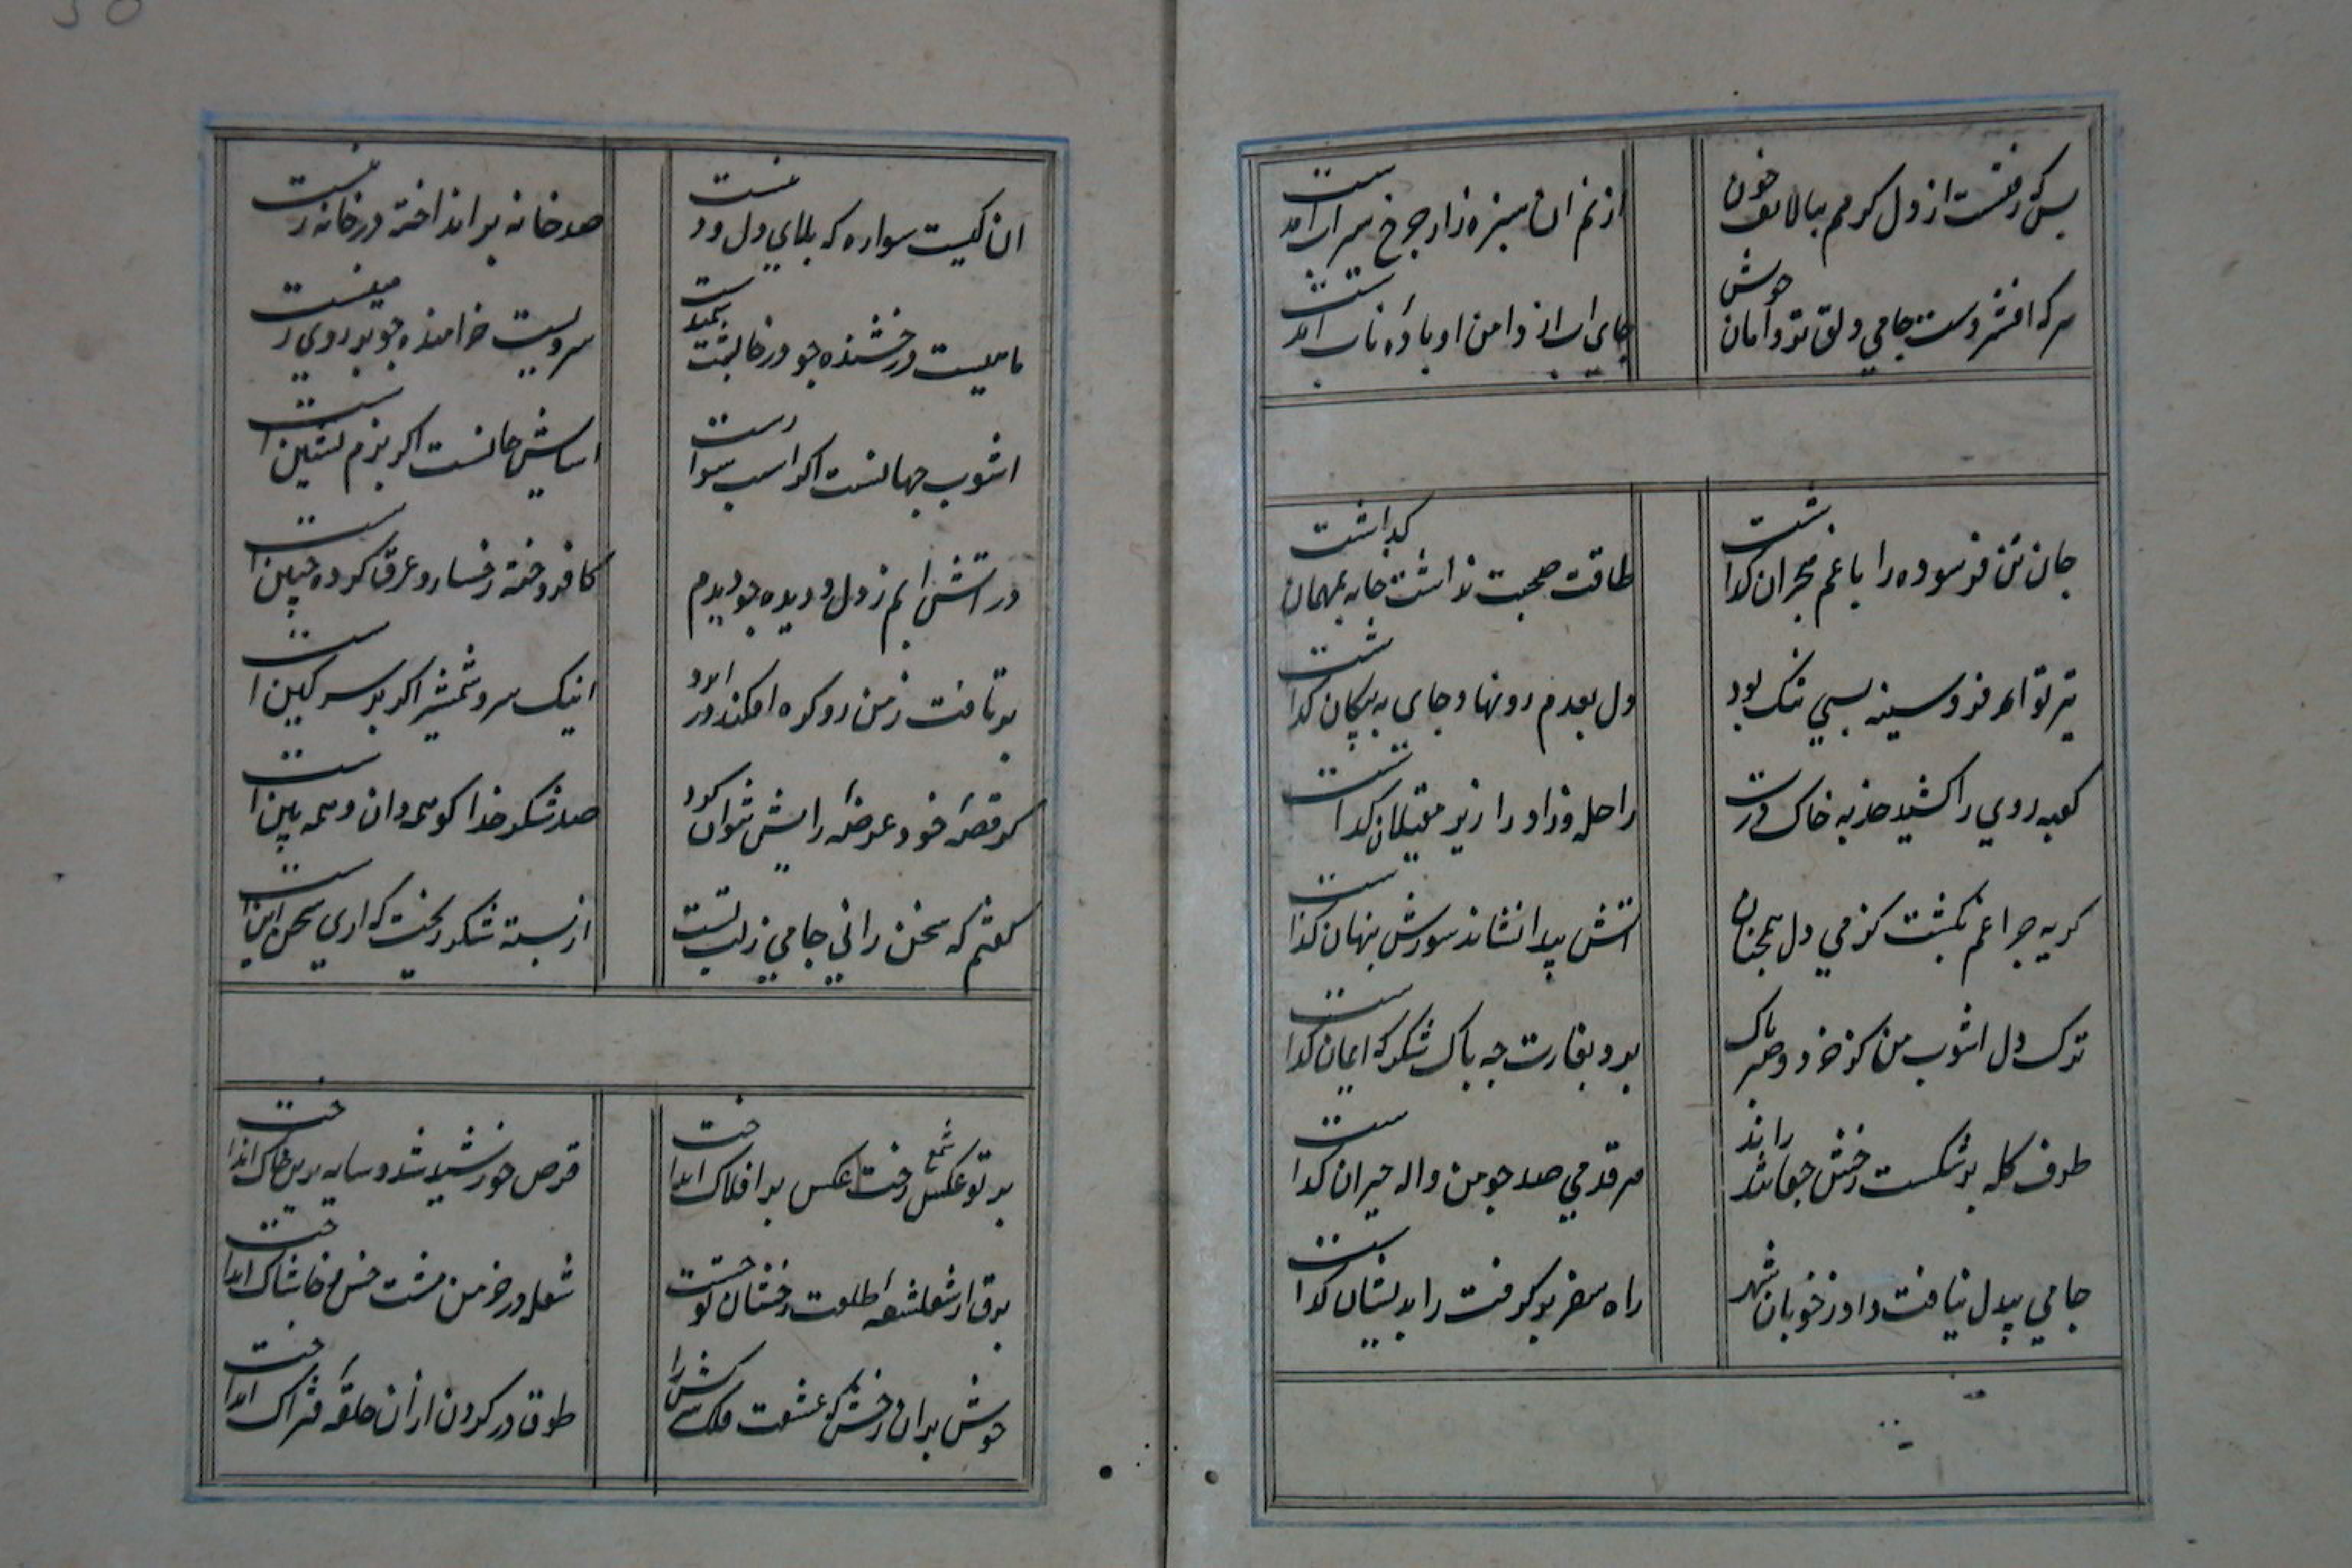 بس که رفتست از دل کرمم ببالا تف خون
از نم ان سبزه زار چرخ سیراب امدست
سرکه افشردست جامی دلق تو دامان حوش
جای اب از دامن او باده ناب امدست
جان تن فرسوده را با غم هجران کذاشت
طاقت صحبت نداشت خانه بمهمان کذاشت
تیر تو امد فرو سینه بسی تنک بود
دل بعدم رو نهاد جای به پیکان کذاشت
کعبه روی را کشید جذبه خاک درت
راحله و زاد را زیر مغیلان کذاشت
کریه چراغم بکشت کز می دل همچنان
اتش پیدا نشاند سوزش پنهان کذاشت
ترک دل اشوب من کز خرد و صبر پاک
برد بغارت چه باک شکر که ایمان کذاشت
طرف کله بر شکست رخش جفا راند
هر قدمی صد چو من واله حیران کذاشت
جامی بیدل نیافت داد ز خوبان شهر
راه سفر بر کرفت را بدیشان کذاشت
ان کیست سواره که بلای دل و دینست
صد خانه بر انداخته در خانه زینست
ماهیست درخشنده چو در خانه
سرویست خرامنده چو بر روی زمینست
اشوب جهانست اکر اسب سوارست
اسایش جانست اکر بزم نشین است
در اتش و ابم ز دل و دیده چو دیدم
کافروخته رخسار و عرق کرده جبین است
بر تافت ز من رو کره افکند در ابرو
اینک سر و شمشیر اکر بر سر کین است
کر قصه خود عرضه رایش نتوان کرد
صد شکر خدا کو همه دان و همه بین است
کفتم که سخن رانی جامی ز لب تست
از بسته شکر ریخت که اری سخن این است
پرتو شمع رخت عکس بر افلاک انداخت
قرص خورشید شد و سایه برین خاک انداخت
برق از شعشعه طلعت رخشان تو جست
شعله در خرمن مشت خس و خاشاک انداخت
خوش بران رخش که عشقت فلک سرکش را
طوق در کردن از ان حلقه فتراک انداخت